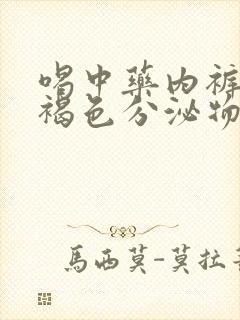 喝中药内裤
褐色分泌物
馬西莫-莫拉